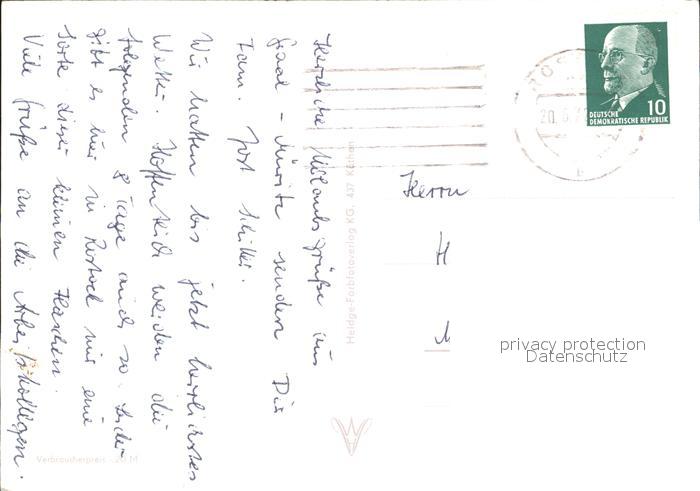 Herzliche Urlaubsgrüße aus
Graal - Müritz senden Dir
Fam. Schiller.
Wir hatten bis jetzt herrliches
Wetter. Hoffentlich werden die
folgenden 8 Tage auch so. Leider
gibt es hier in Rostock nur eine
Sorte dieser kleinen Flaschen.
Viele Grüße an die Arbeitskollegen.
Verbraucherpreis -,20 M
Heldge-Farbfotoverlag KG, 437 Köthen
DEUTSCHE
DEMOKRATISCHE REPUBLIK
10
20.6.7
b
Herrn
H
M
privacy protection
Datenschutz